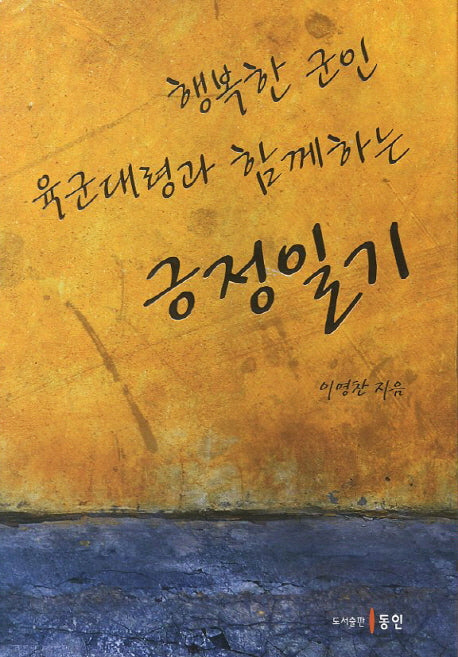 행복한 군인
육군대령과 함께하는
긍정일기
이명찬 지음
도서출판 동인